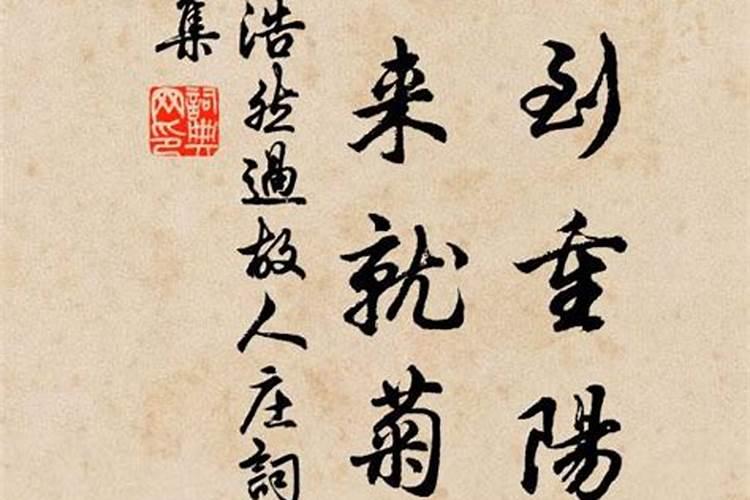 到重陽
来就菊
浩然過故人庄詞
集
詞典
网印